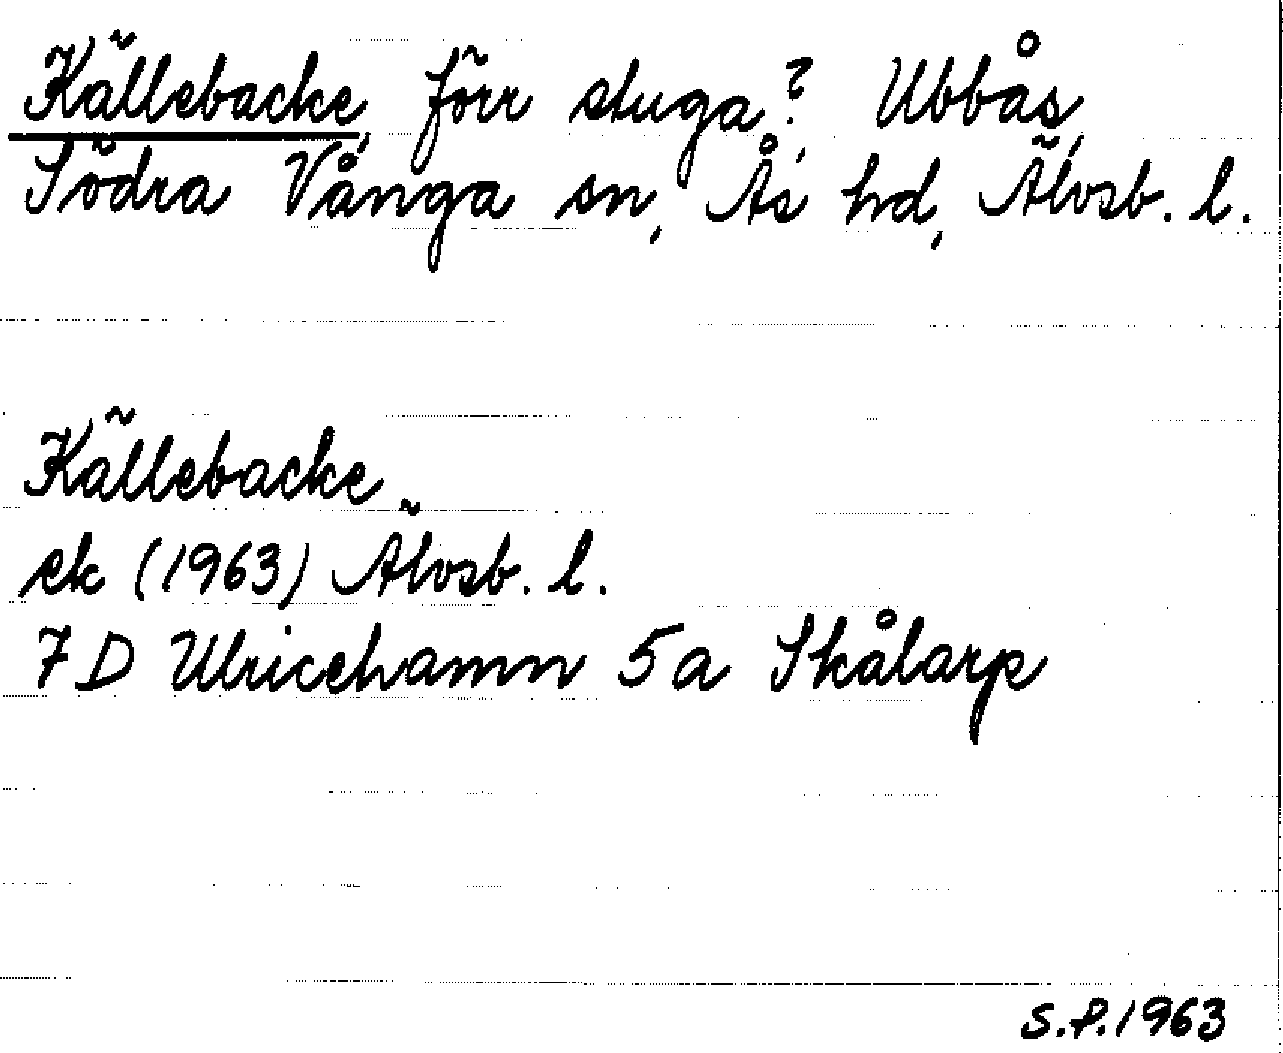 Källebacke, förr stuga? Ubbås,
Södra Vånga sn, Ås hd, Älvsb. l.
Källebacke
ek (1963) Älvsb. l.
7D Ulricehamn 5a Skålarp
S.P. 1963